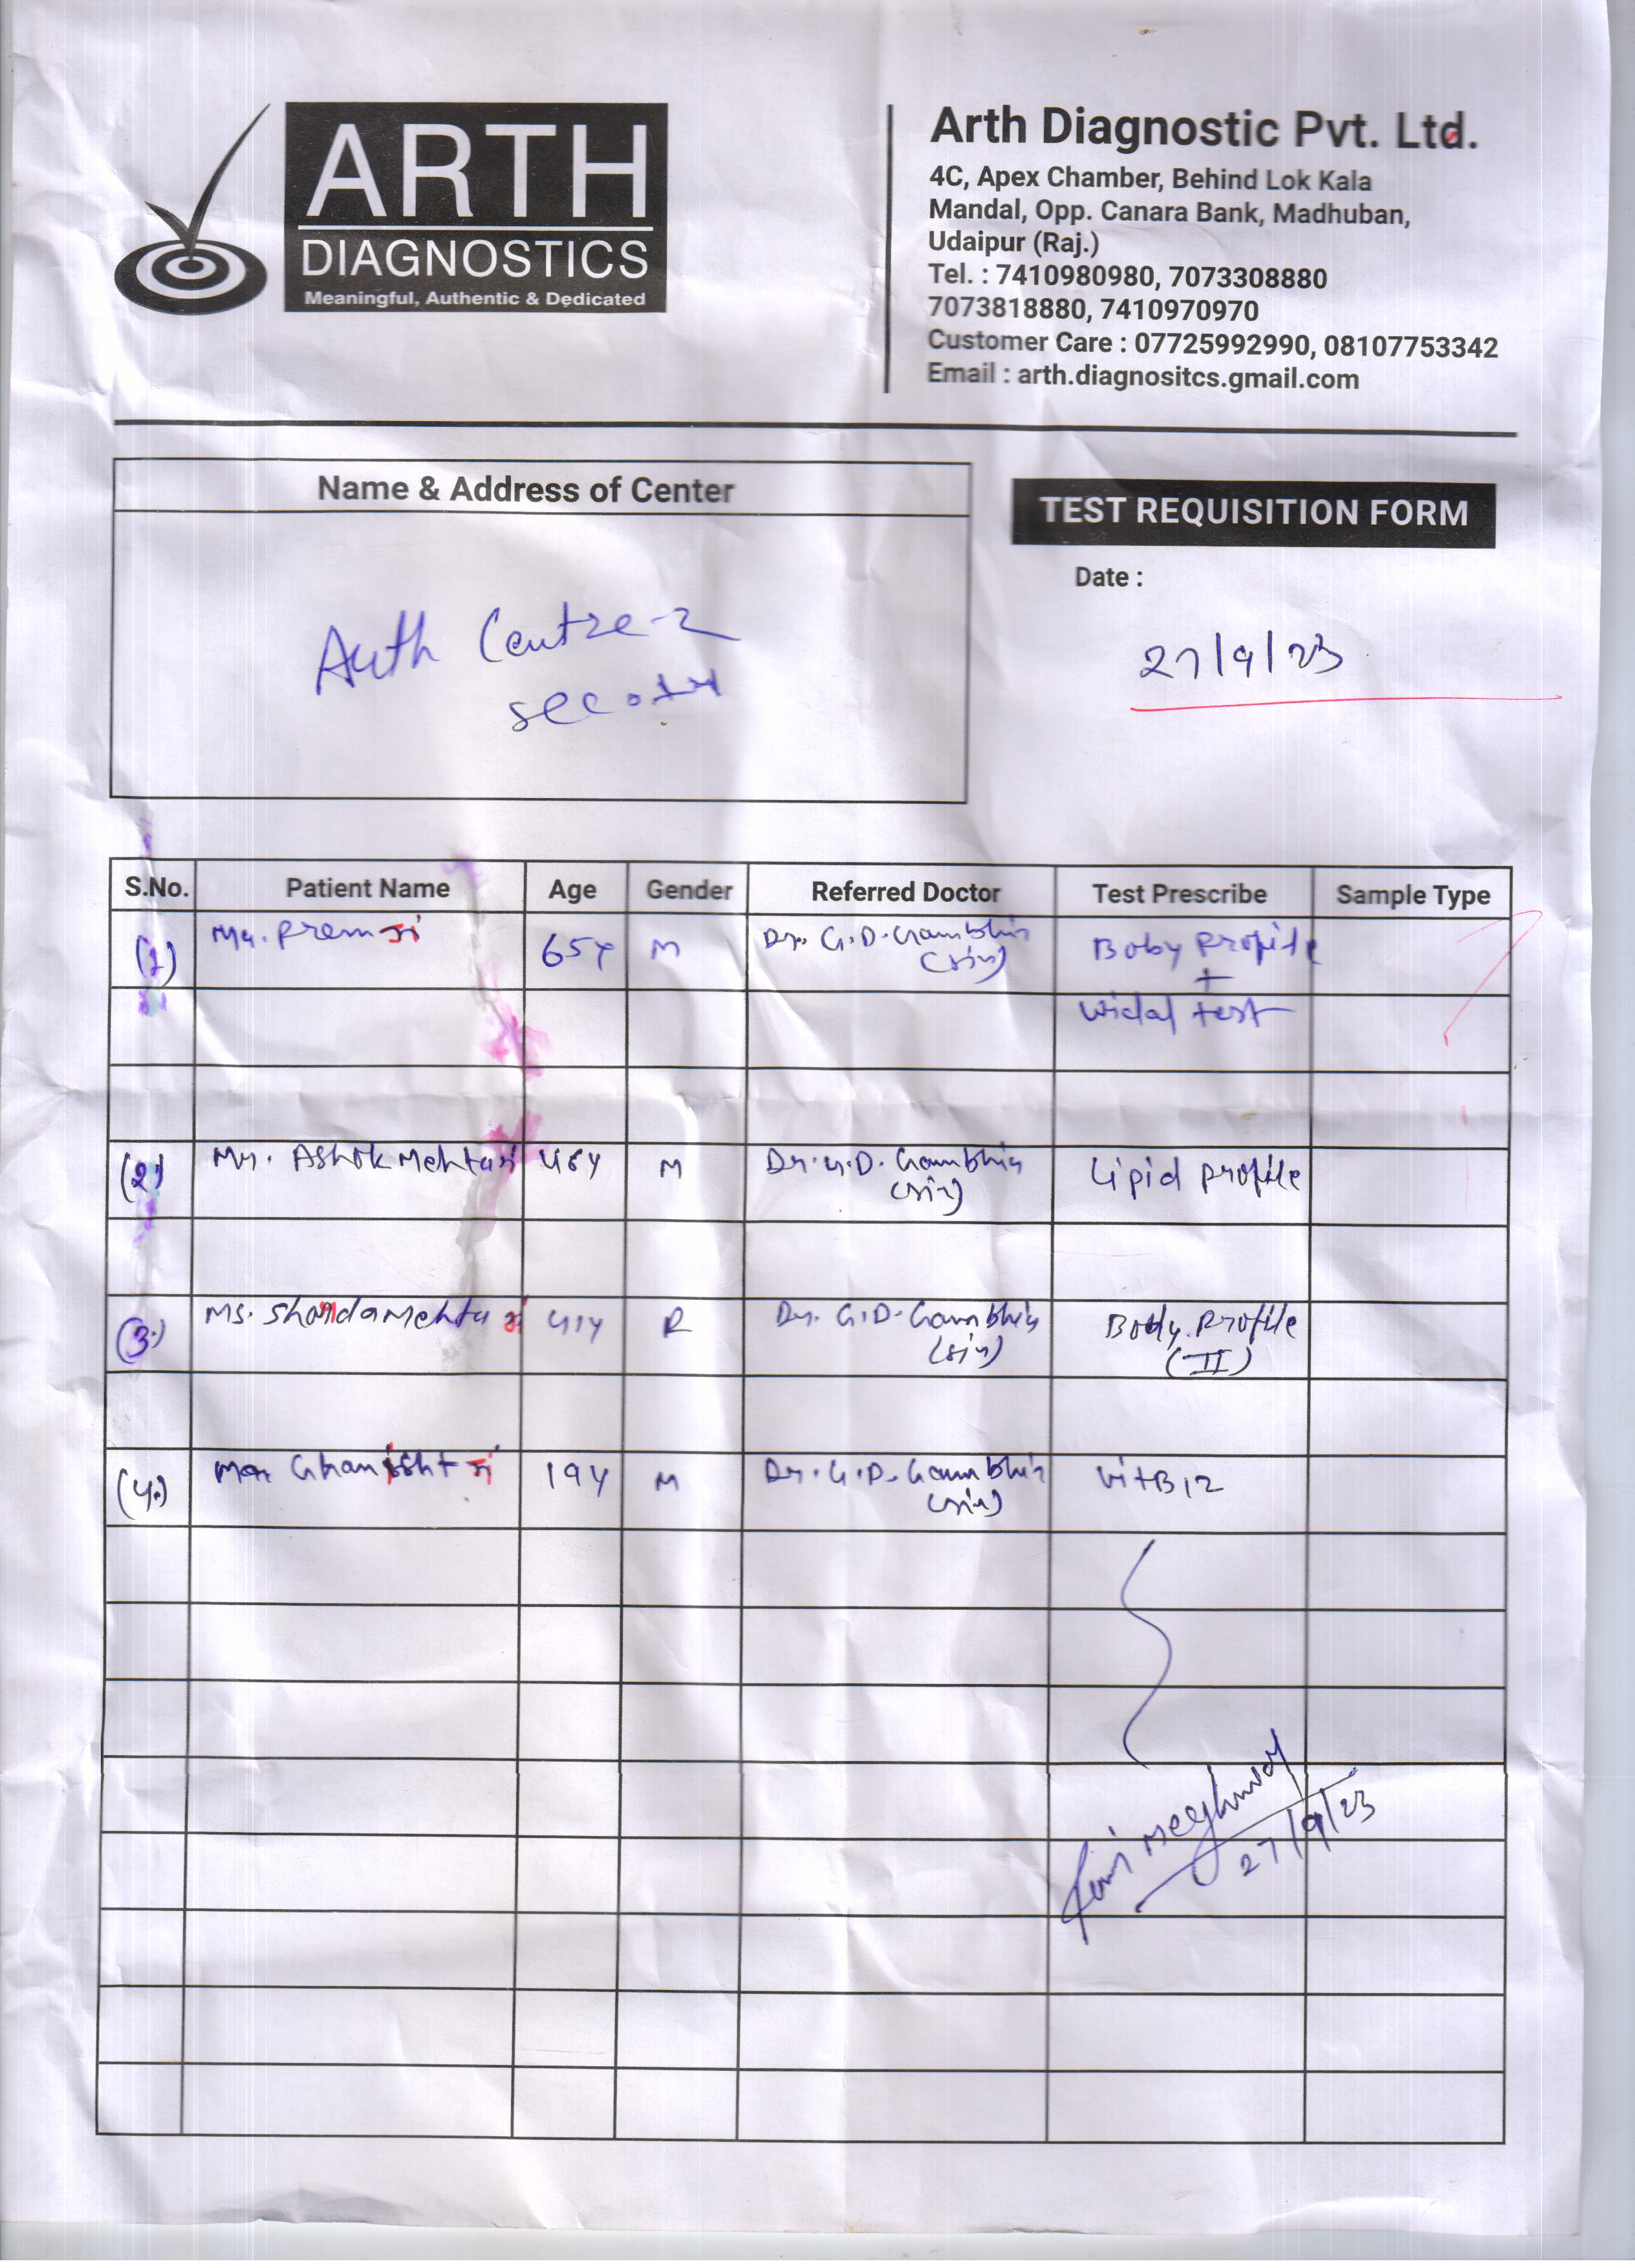 ARTH
DIAGNOSTICS
Meaningful, Authentic & Dedicated
Arth Diagnostic Pvt. Ltd.
4C, Apex Chamber, Behind Lok Kala
Mandal, Opp. Canara Bank, Madhuban,
Udaipur (Raj.)
Tel. : 7410980980, 7073308880
7073818880, 7410970970
Customer Care : 07725992990, 08107753342
Email : arth.diagnositcs.gmail.com
Name & Address of Center
TEST REQUISITION FORM
Date :
27/9/23
Arth Centre-2
S.No. Patient Name Age Gender Referred Doctor Test Prescribe Sample Type
(1) Mr. Prem Ji 65Y M Dr. G.D. Gambhir (sir) Boby Profile
+
Widal test
(2) Mr. Ashok Mehta Ji 46Y M Dr. G.D. Gambhir (sir) Lipid Profile
(3) Ms. Mehta Ji 41Y Dr. G.D. Gambhir (sir) Body Profile
(II)
(4) Ji 19Y M Dr. G.D. Gambhir (sir) Vit B12
Meghwal
27/9/23